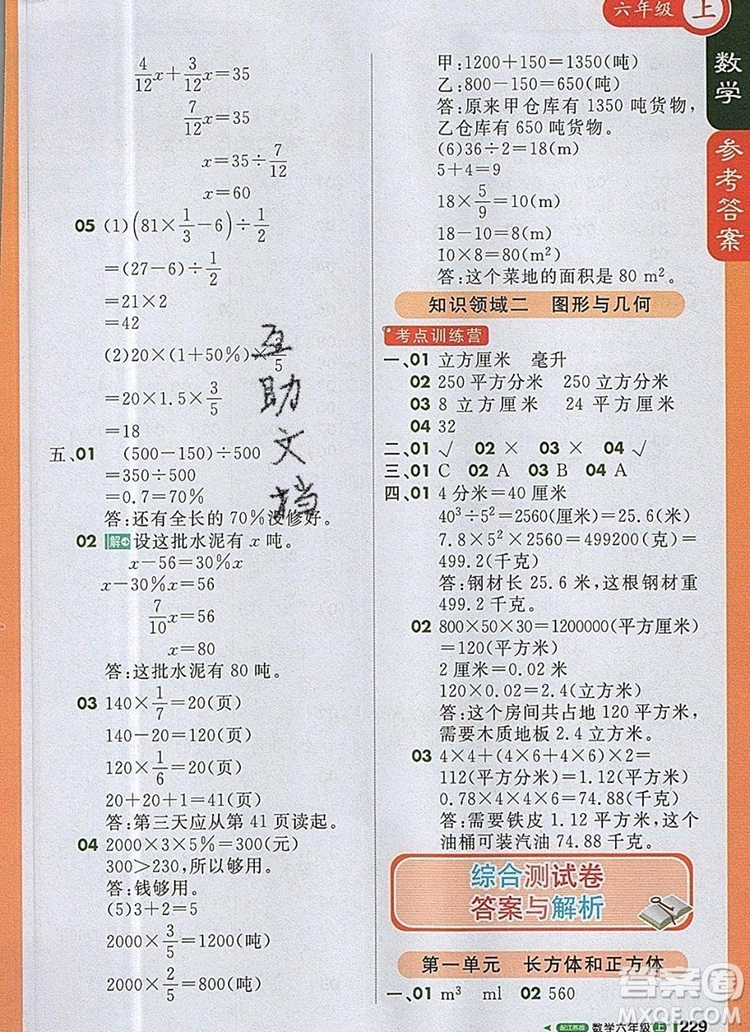 六年级 上
数学
参考答案
4/12x+3/12x=35
7/12x=35
x=35÷7/12
x=60
05 (1)(81×1/3-6)÷1/2
=(27-6)÷1/2
=21×2
=42
(2)20×(1+50%)×3/5
=20×1.5×3/5
=18
五、01 (500-150)÷500
=350÷500
=0.7=70%
答:还有全长的70%没修好。
02 解 设这批水泥有 x 吨。
x-56=30%x
x-30%x=56
7/10x=56
x=80
答:这批水泥有 80 吨。
03 140×1/7=20(页)
140-20=120(页)
120×1/6=20(页)
20+20+1=41(页)
答:第三天应从第 41 页读起。
04 2000×3×5%=300(元)
300>230,所以够用。
答:钱够用。
(5)3+2=5
2000×3/5=1200(吨)
2000×2/5=800(吨)
甲:1200+150=1350(吨)
乙:800-150=650(吨)
答:原来甲仓库有 1350 吨货物,
乙仓库有 650 吨货物。
(6)36÷2=18(m)
5+4=9
18×5/9=10(m)
18-10=8(m)
10×8=80(m²)
答:这个菜地的面积是 80 m²。
知识领域二 图形与几何
考点训练营
一、01 立方厘米 毫升
02 250 平方分米 250 立方分米
03 8 立方分米 24 平方分米
04 32
二、01 √ 02 × 03 × 04 √
三、01 C 02 A 03 B 04 A
四、01 4 分米=40 厘米
40³÷5²=2560(厘米)=25.6(米)
7.8×5²×2560=499200(克)=
499.2(千克)
答:钢材长 25.6 米,这根钢材重
499.2 千克。
02 800×50×30=1200000(平方厘米)
=120(平方米)
2 厘米=0.02 米
120×0.02=2.4(立方米)
答:这个房间共占地 120 平方米,
需要木质地板 2.4 立方米。
03 4×4+(4×6+4×6)×2=
112(平方分米)=1.12(平方米)
0.78×4×4×6=74.88(千克)
答:需要铁皮 1.12 平方米,这个
油桶可装汽油 74.88 千克。
综合测试卷
答案与解析
第一单元 长方体和正方体
一、01 m³ ml 02 560
配江苏版 数学六年级 上 229
互助文档
答案圈